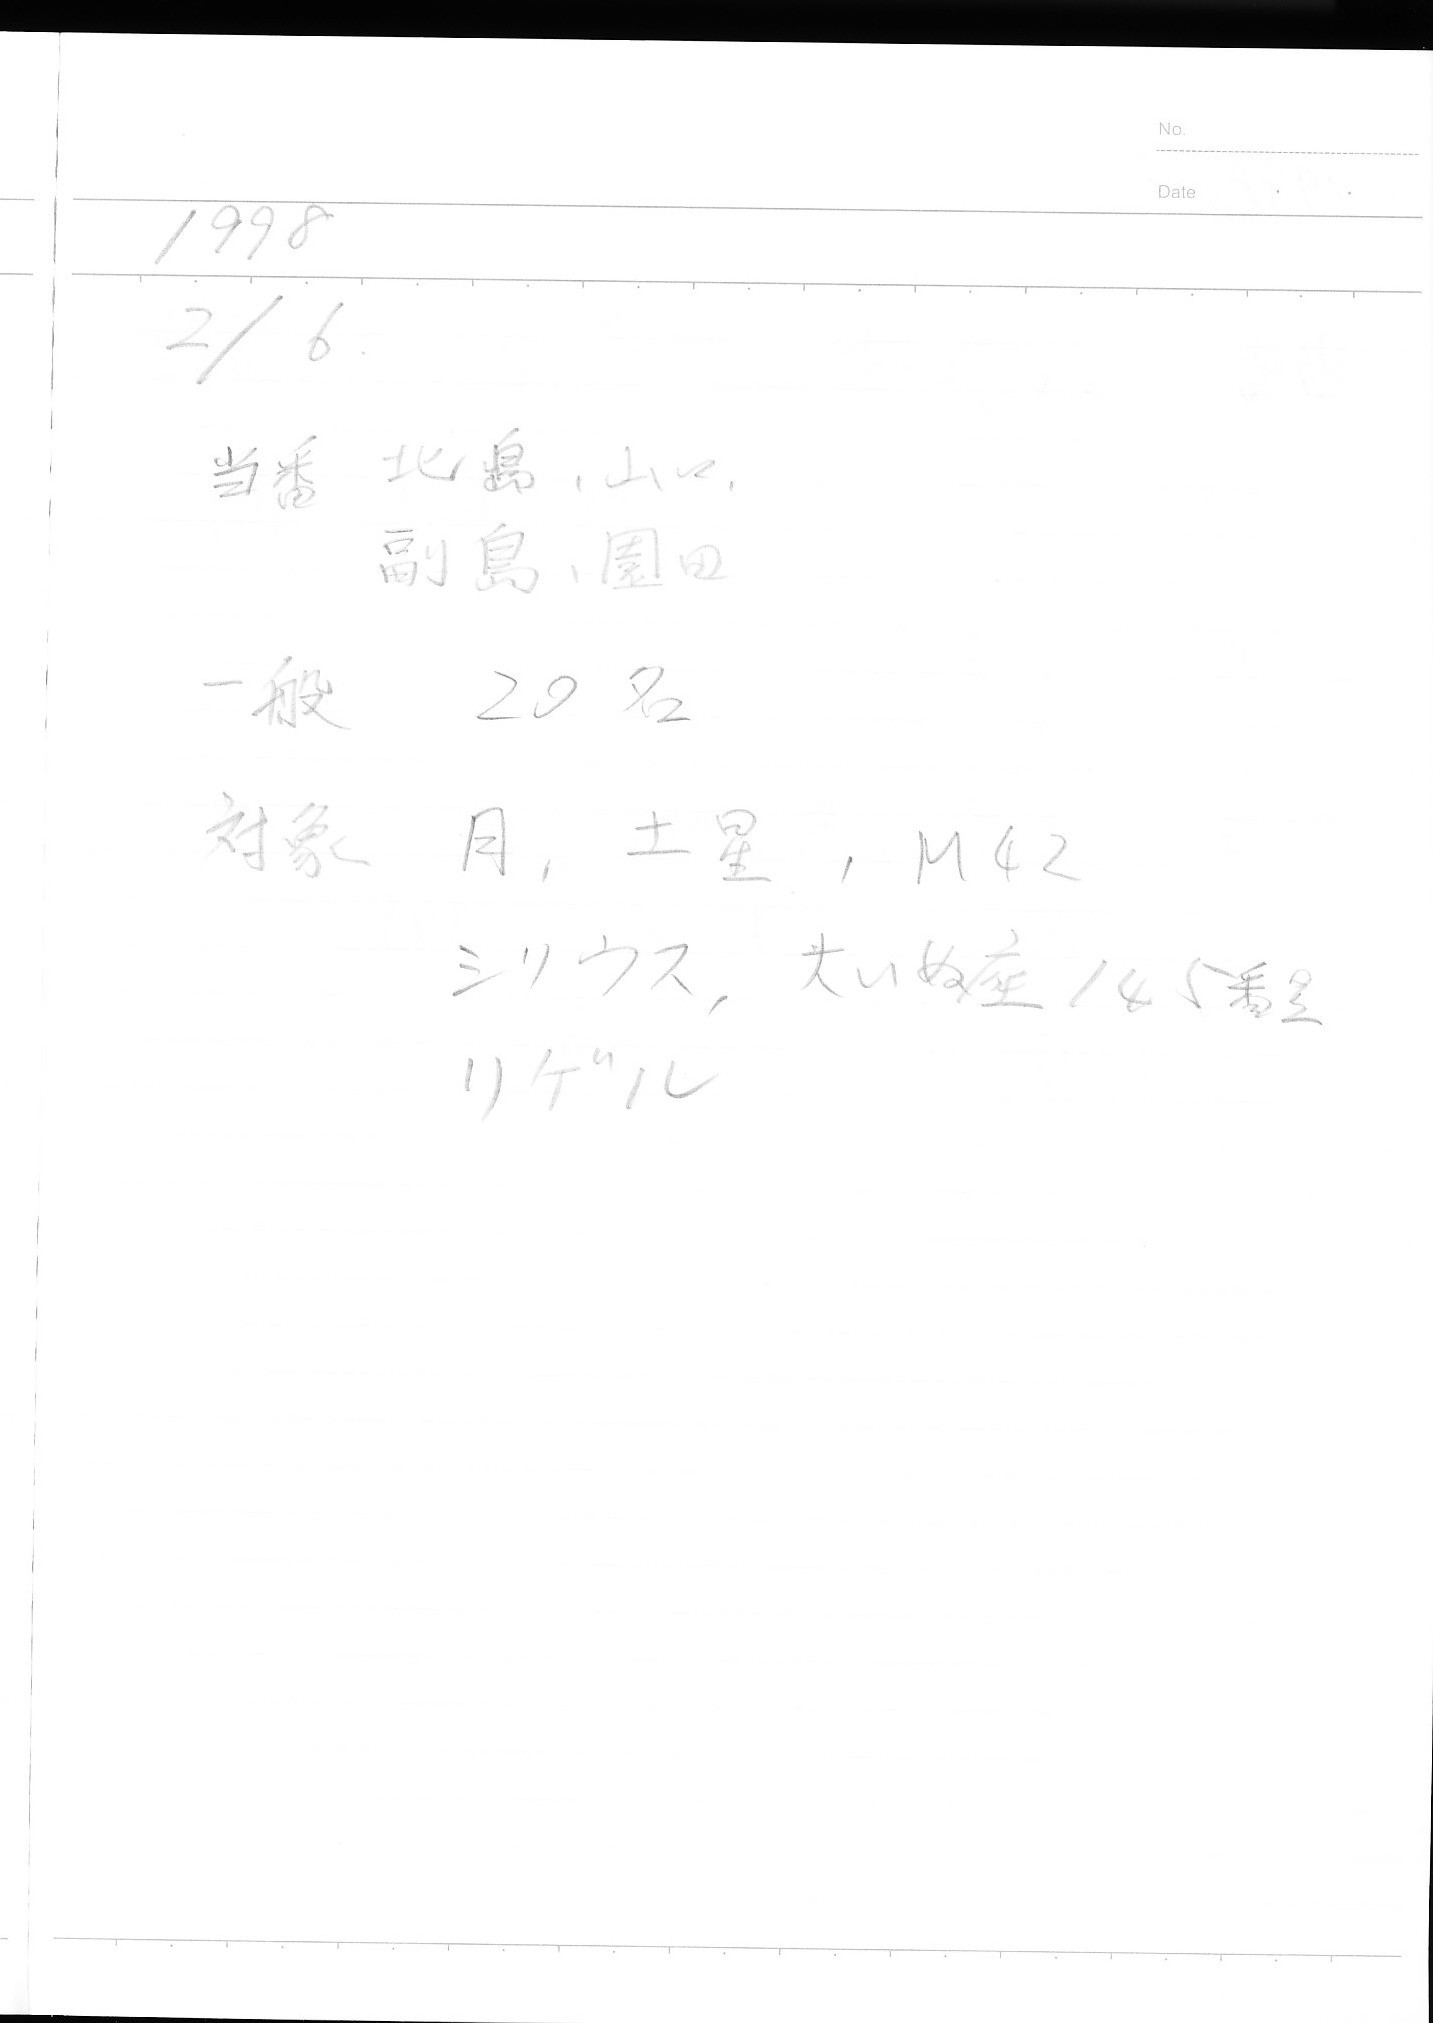 No.
Date
1998
2/6.
当番 北島、山口、
副島、園田
一般 20名
対象 月, 土星, M42
シリウス, 大いぬ座145番星
リゲル